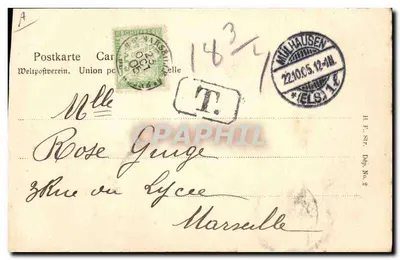 A
18 3/
Postkarte Car
Weltpostverein. Union po elle
MÜLHAUSEN
22.10.05.12-1N.
*(ELS)1.
T.
CPARAMA
Mlle
Rose Guige
3 Rue du Lycée
Marseille
H. F. Str. Dép. No. 2